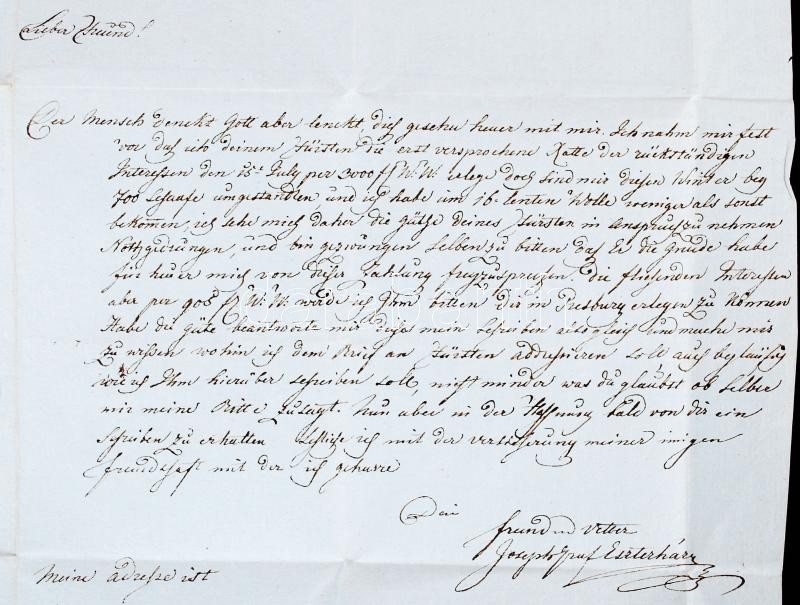 Lieber Freund!
Der Mensch denckt Gott aber lenckt, dies geschu heuer mit mir. Ich nahm mir fest
vor das ich deinem Fürsten die erst versprochene Ratte der rückständigen
Interessen den 15t July per 3000 f W: W: erlege doch sind mir diesen Winter bey
700 Schaafe umgestanden und ich habe um 16 Centen Wolle weniger als sonst
bekomen, ich sehe mich daher die gütte deines Fürsten in Anspruch zu nehmen
Nothgedrungen, und bin gezwungen Selben zu bitten das Er die gnade habe
für heuer mich von dieser Zahlung freyzusprechen. Die fliesenden Interessen
aber per 908 f W: W: werde ich Ihm bitten dir in Presburg erlegen zu können
Habe die güte beantworte mir dieses mein schreiben allsogleich und mache mir
zu wissen wohin ich dem Brief an Fürsten addressieren soll auch beyläufig
wie ich Ihm hierüber schreiben soll, nicht minder was du glaubst ob Selber
mir meine Bitte zusagt. Nun aber in der Hoffnung bald von dir ein
schreiben zu erhalten schliese ich mit der versicherung meiner inigen
freundschaft mit der ich geharre
Dein
freund und Vetter
Joseph Graf Eszterházy
Meine adresse ist